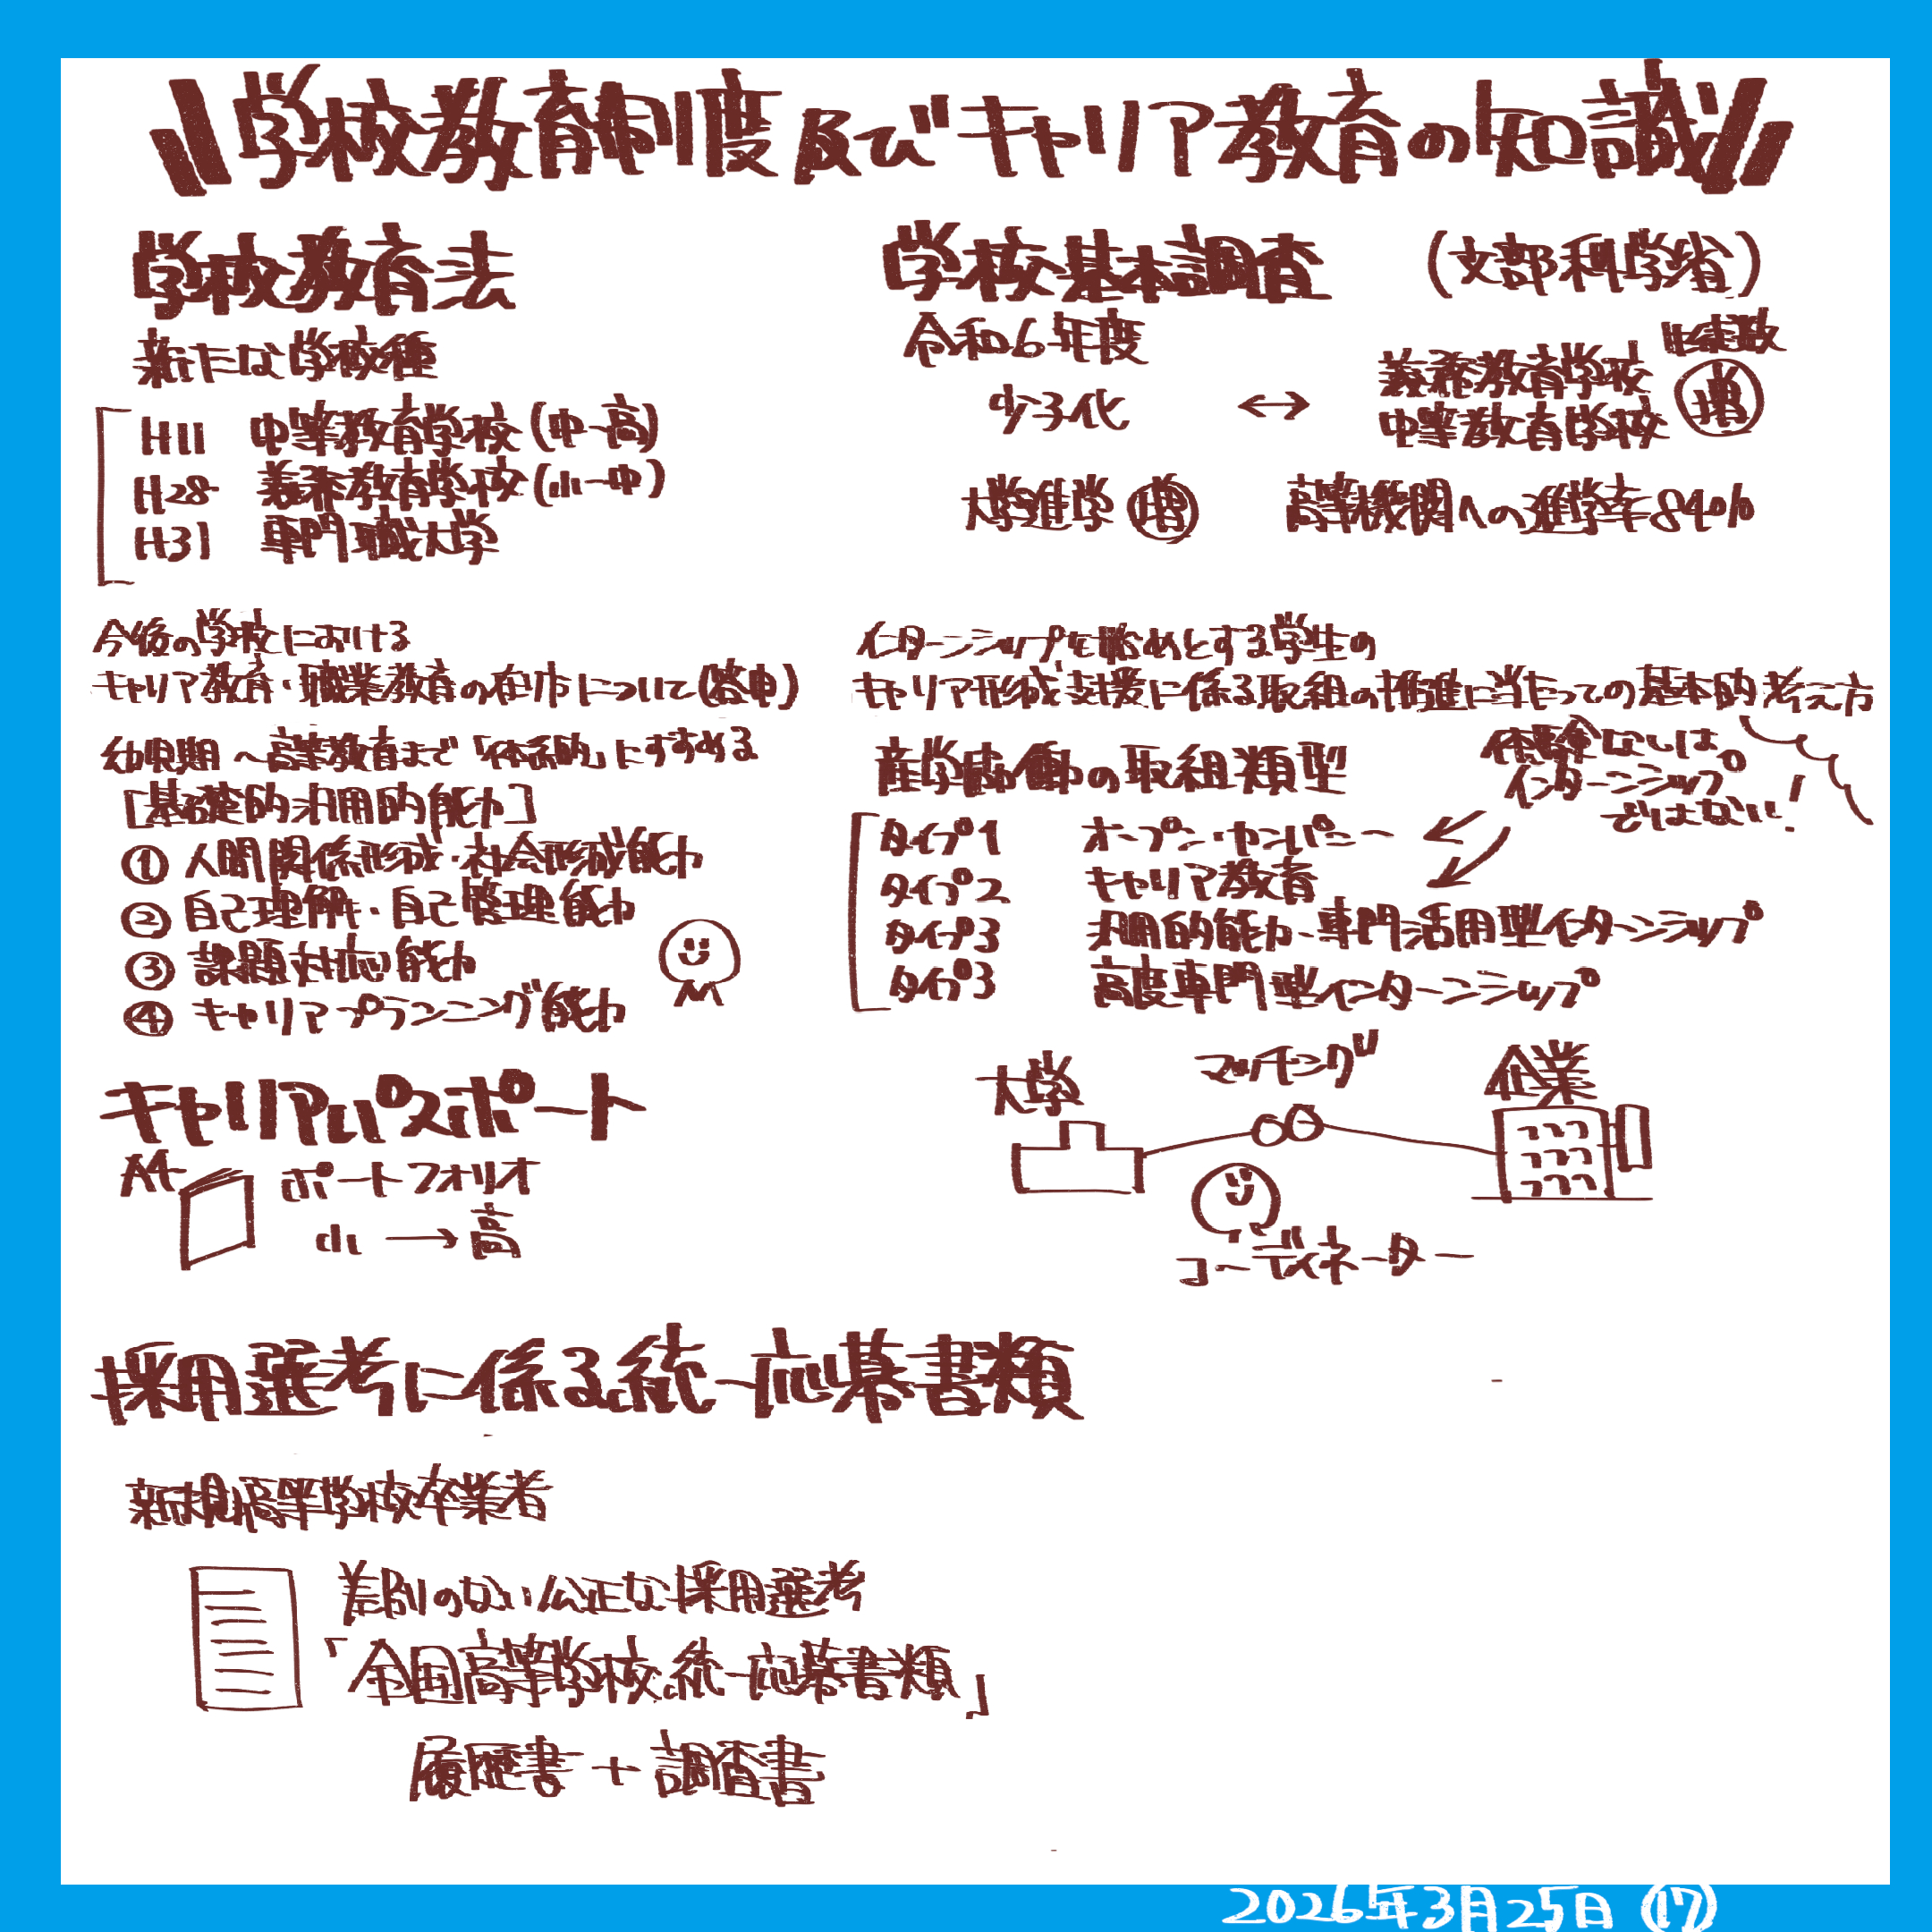 学校教育制度及びキャリア教育の知識
学校教育法
新たな学校種
H11 中等教育学校(中-高)
H28 義務教育学校(小-中)
H31 専門職大学
学校基本調査 (文部科学省)
令和6年度
少子化 ↔ 義務教育学校 中等教育学校 生徒数 増
大学進学 増 高等機関への進学率84%
今後の学校における
キャリア教育・職業教育の在り方について(答申)
幼児期〜高等教育まで「体系的」にすすめる
[基礎的・汎用的能力]
① 人間関係形成・社会形成能力
② 自己理解・自己管理能力
③ 課題対応能力
④ キャリアプランニング能力
インターンシップを始めとする学生の
キャリア形成支援に係る取組の推進に当たっての基本的考え方
産学協働の取組類型
体験なしは
インターンシップ
ではない!
タイプ1 オープン・カンパニー
タイプ2 キャリア教育
タイプ3 汎用的能力・専門活用型インターンシップ
タイプ3 高度専門型インターンシップ
大学 マッチング 企業
コーディネーター
キャリアパスポート
A4 ポートフォリオ
小→高
採用選考に係る統一応募書類
新規高等学校卒業者
差別のない公正な採用選考
「全国高等学校統一応募書類」
履歴書+調査書
2026年3月25日(17)